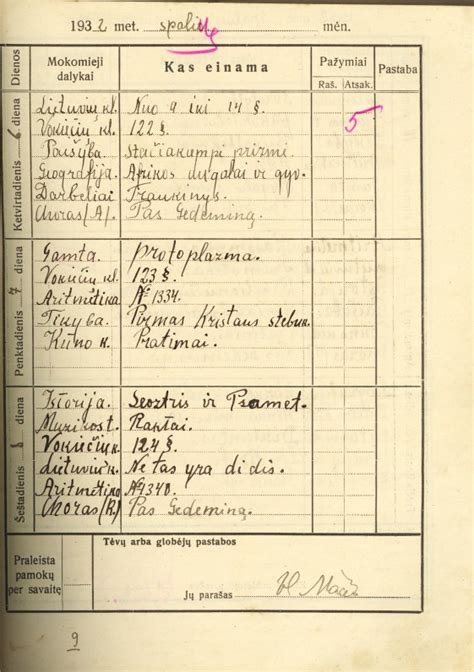 1932 met. spalių mėn.
Dienos Mokomieji dalykai Kas einama Pažymiai Raš. Atsak. Pastaba
Ketvirtadienis 6 diena
Lietuvių kl. Nuo 9 iki 14 §. 5
Vokiečių kl. 122 §.
Paišyba. Stačiakampi prizmi.
Geografija. Afrikos augalai ir gyv.
Darbeliai Traukinys.
Choras (A). Pas Gedeminą.
Penktadienis 7 diena
Gamta. Protoplazma.
Vokiečių kl. 123 §.
Aritmetika № 1334.
Tikyba. Pirmas Kristaus stebuk.
Kūno k. Pratimai.
Šeštadienis diena
Istorija. Sezostris ir Psamet.
Muzikost. Raktai.
Vokiečių k. 124 §.
Lietuvių k. Ne tas yra didis.
Aritmetika №1340.
Choras Pas Gedeminą.
Praleista pamokų per savaitę
Tėvų arba globėjų pastabos
Jų parašas
9